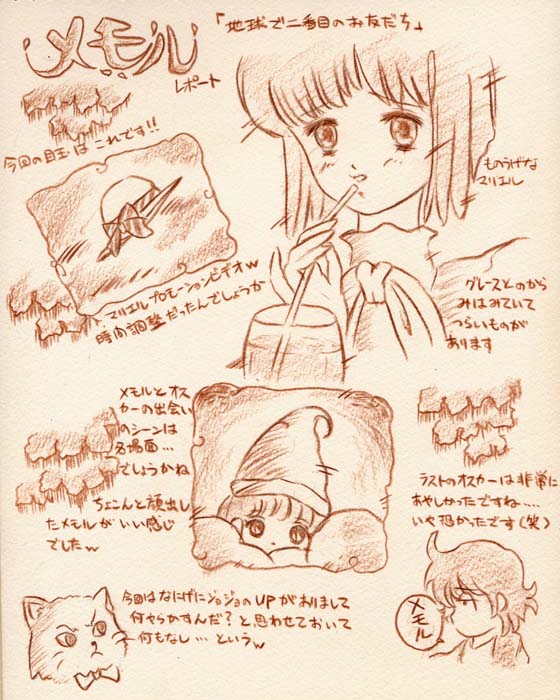 メモル
レポート
「地球で二番目のお友だち」
今回の目玉はこれです!!
ものうげな
マリエル
マリエルプロモーションビデオw
時間調整だったんでしょうか
グレースとのから
みはみていて
つらいものが
あります
メモルとオス
カーの出会い
のシーンは
名場面…
でしょうかね
ちょこんと顔出し
たメモルがいい感じ
でしたw
ラストのオスカーは非常に
あやしかったですね….
いや恐かったです(笑)
今回はなにげにジョジョのUPがありまして
何やらかすんだ?と思わせておいて
何もなし…というw
メモル